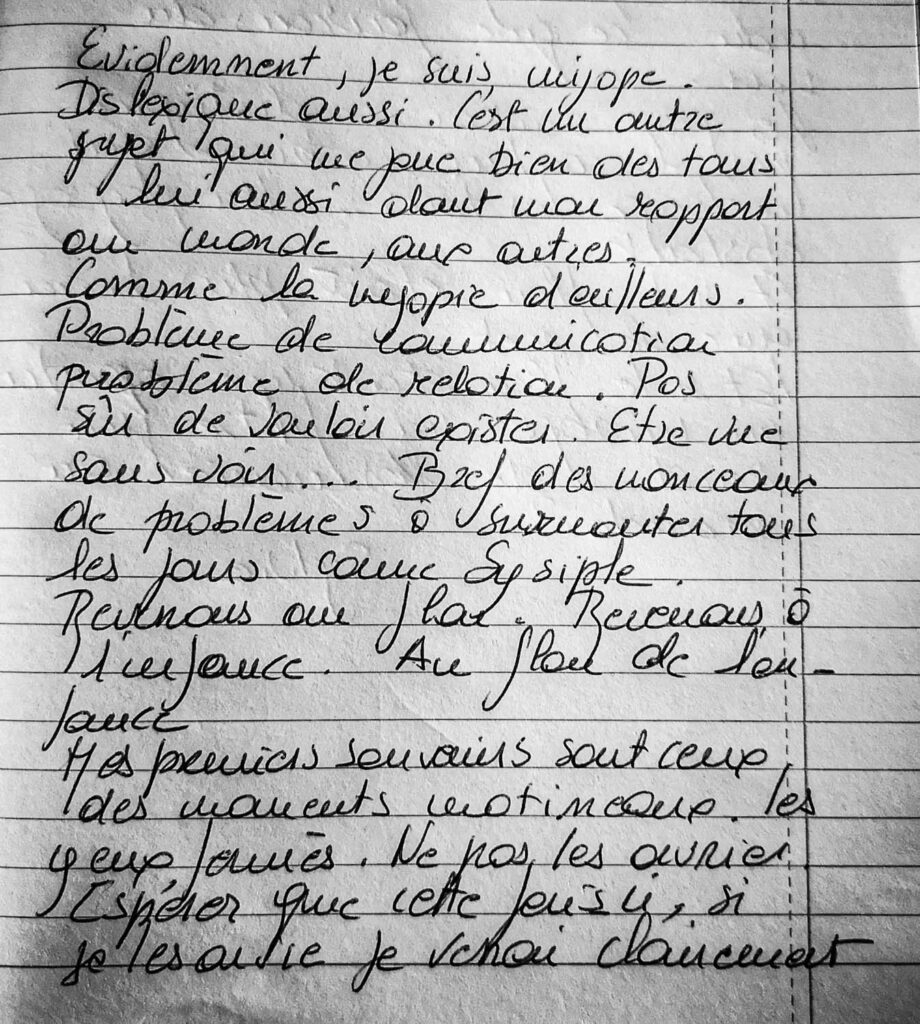 Evidemment, je suis myope.
Dislexique aussi. C'est un autre
sujet qui me joue bien des tours
lui aussi dans mon rapport
au monde, aux autres.
Comme la myopie d'ailleurs.
Problème de communication
problème de relation. Pas
sûr de vouloir exister. Etre vue
sans voir... Bref des monceaux
de problèmes à surmonter tous
les jours comme Sysiphe.
Revenons au flou. Revenons à
l'enfance. Au flou de l'en-
fance
Mes premiers souvenirs sont ceux
des moments matineaux. les
yeux fermés. Ne pas les ouvrir
Espérer que cette fois ci, si
je les ouvre je verrai clairement